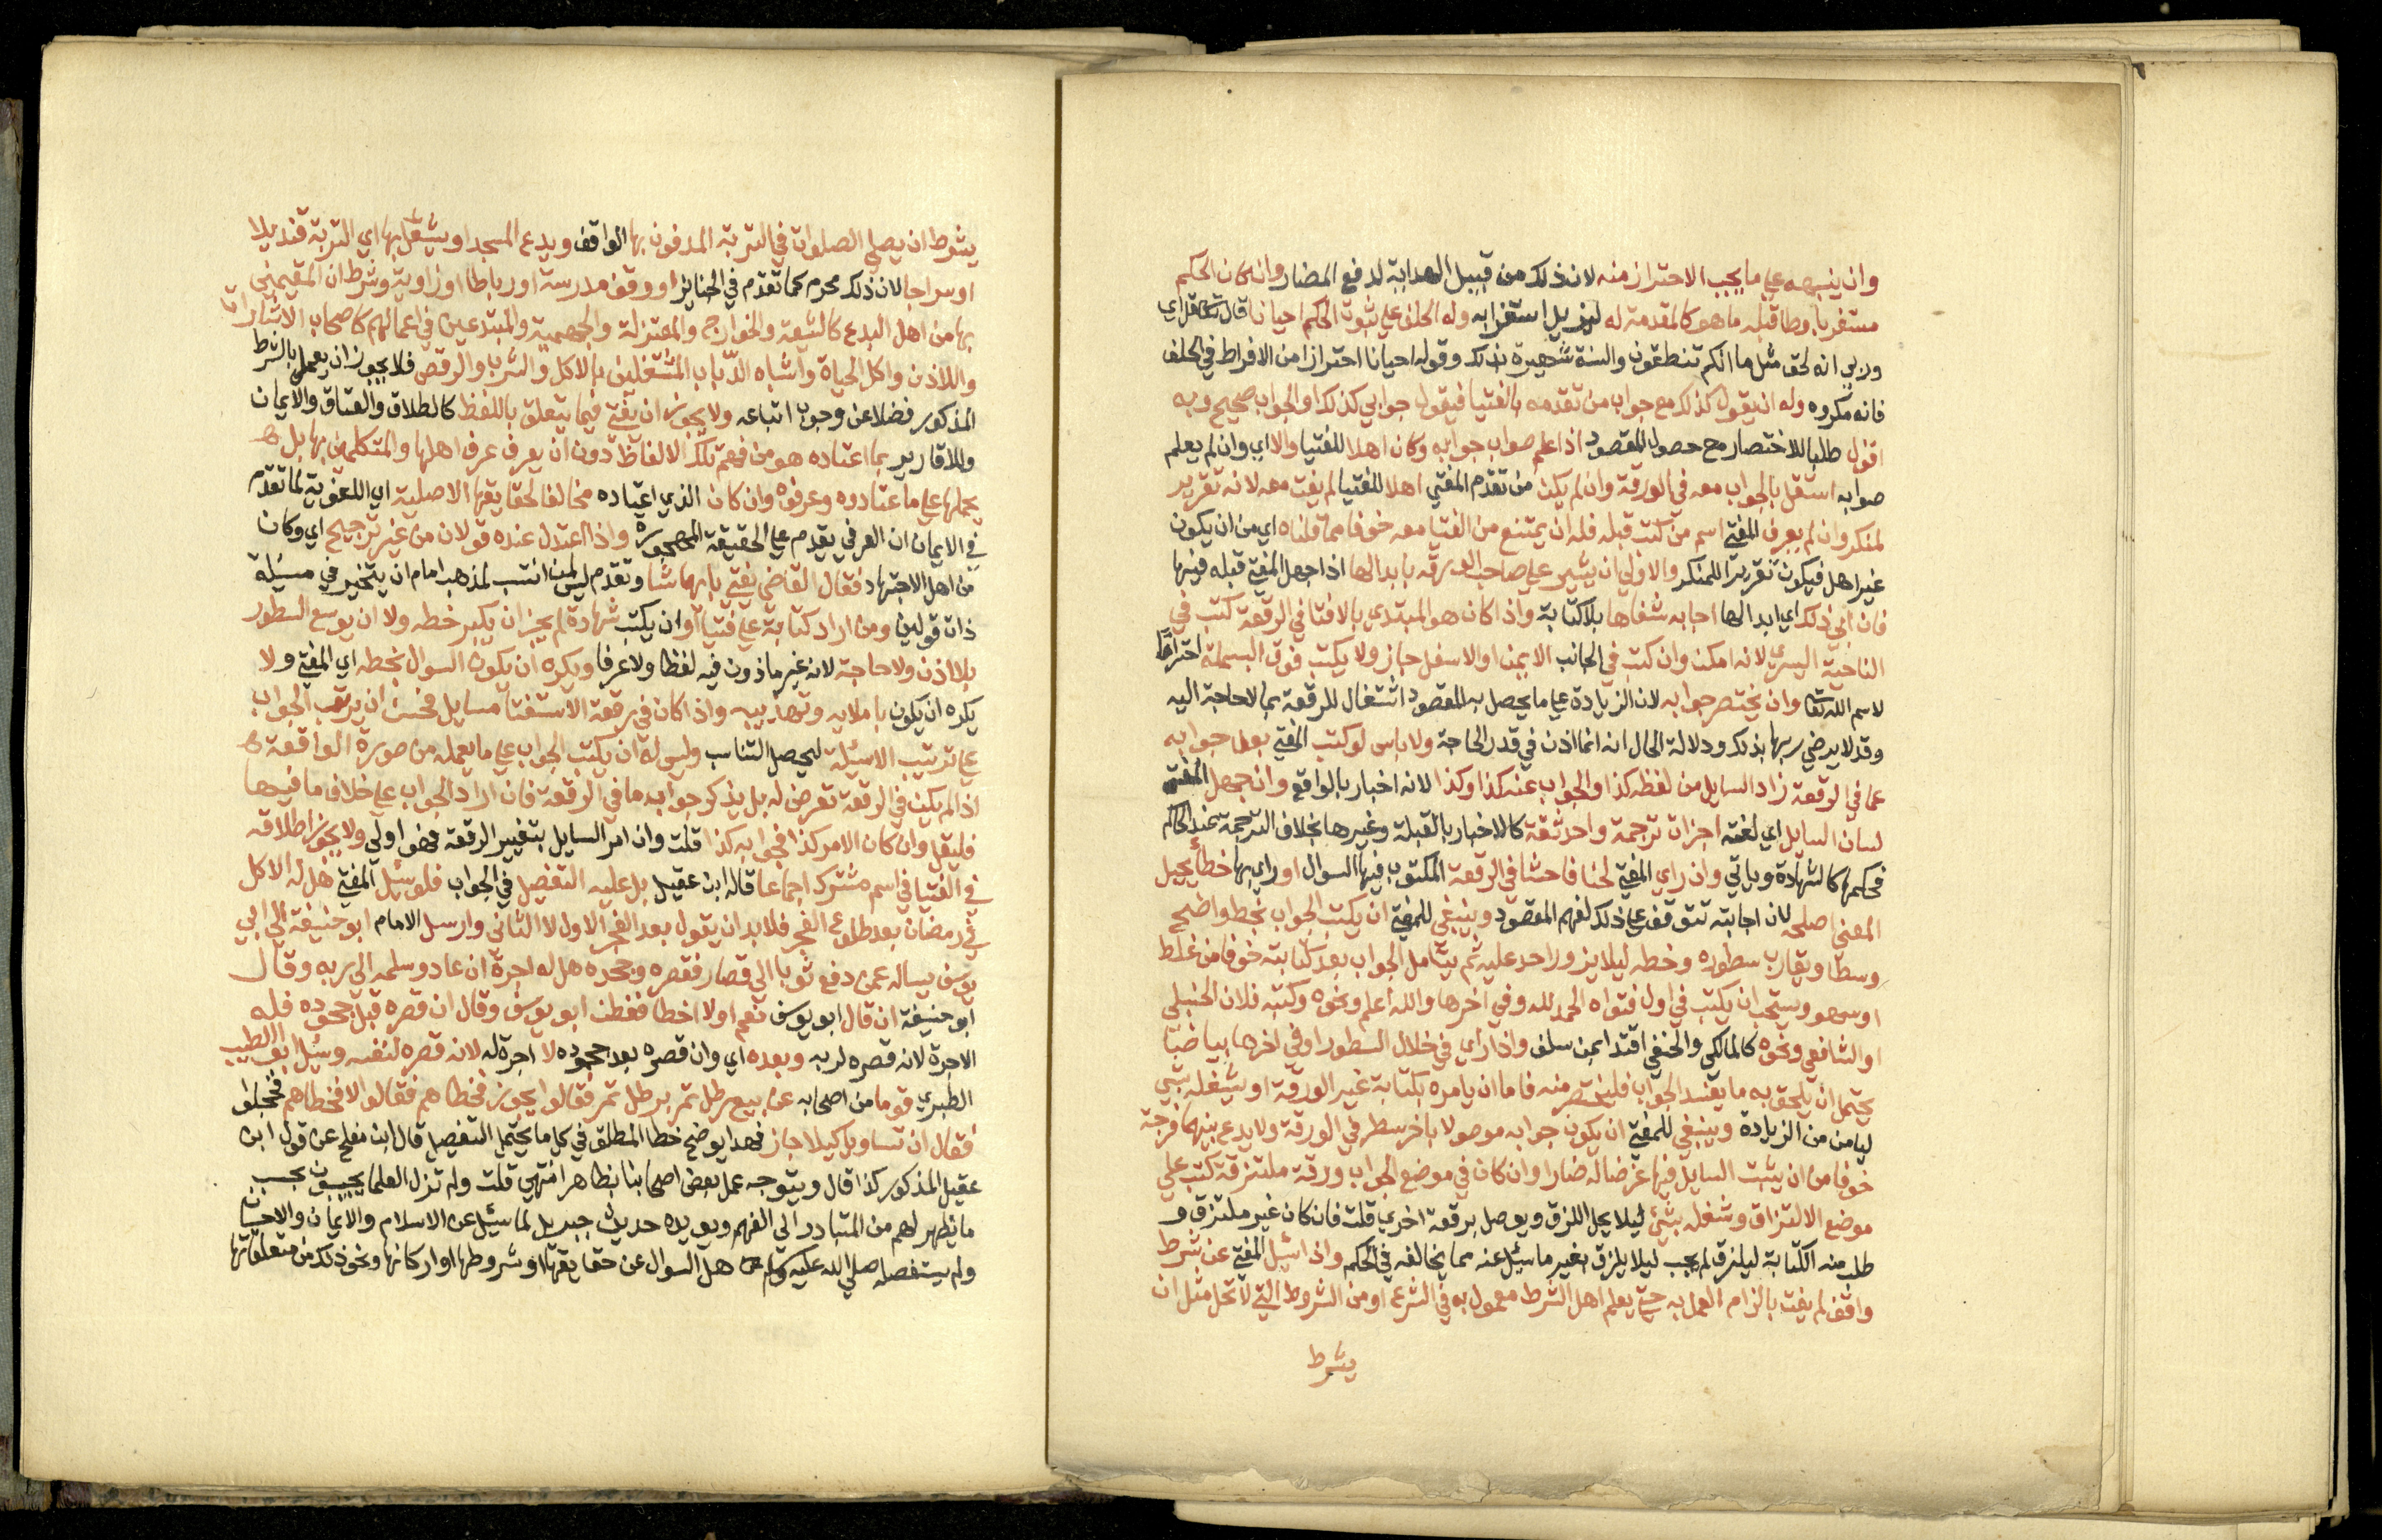 وان ينبهه علي ما يجب الاحتراز منه لان ذلك من قبيل الهداية لدفع المضار وان كان الحكم
مستغربا وطا قبله ما هو كالمقدمة له ليزيل استغرابه وله الحلف علي ثبوت الحكم احيانا قال تعالى اي
وربي انه لحق مثل ما انكم تنطقون والسنة شهيرة بذلك وقوله احيانا احترازا من الافراط في الحلف
فانه مكروه وله ان يقول كذلك مع جواب من تقدمه بالفتيا فيقول جوابي كذلك او الجواب صحيح وبه
اقول طلبا للاختصار مع حصول المقصود اذا علم صواب جوابه وكان اهلا للفتيا والا اي وان لم يعلم
صوابه استقل بالجواب معه في الورقة وان لم يكن من تقدم المفتي اهلا للفتيا لم يفت معه لانه تقرير
لمنكر وان لم يعرف المفتي اسم من كتب قبله فله ان يمتنع من الفتيا معه خوفا مما قلناه اي من ان يكون
غير اهل فيكون تقريرا للمنكر والاولي ان يشير علي صاحب الورقة بابدالها اذا جهل المفتي قبله فيها
فان ابي ذلك اي ابدالها اجابه شفاها بلا كتابة واذا كان هو المبتدي بالافتا في الرقعة كتب في
الناحية اليسري لانه امكن وان كتب في الجانب الايمن او الاسفل جاز ولا يكتب فوق البسملة احتراما
لاسم الله تعا وان يختصر جوابه لان الزيادة علي ما يحصل به المقصود اشتغال للرقعة بما لا حاجة اليه
وقد لا يرضي ربها بذلك ودلالة الحال انه انما اذن في قدر الحاجة ولا باس لو كتب المفتي بعد جوابه
عما في الرقعة زاد السايل من لفظه كذا والجواب عنه كذا وكذا لانه اخبار بالواقع وان جهل المفتي
لسان السايل اي لغته اجزات ترجمة واحد ثقة كالاخبار بالقبلة وغيرها بخلاف الترجمة عند الحاكم
فحكمها كالشهادة وياتي وان راي المفتي لحنا فاحشا في الرقعة المكتوب فيها السوال او راي بها خطأ يحيل
المعني اصلحه لان اجابته تتوقف علي ذلك لفهم المقصود وينبغي للمفتي ان يكتب الجواب بخط واضح
وسطا ويقارب سطوره وخطه ليلا يزور احد عليه ثم يتامل الجواب بعد كتابته خوفا من غلط
او سهو ويستحب ان يكتب في اول فتواه الحمد لله وفي اخرها والله اعلم ونحوه وكتبه فلان الحنبلي
او الشافعي ونحوه كالمالكي والحنفي اقتدا بمن سلف واذا راي في خلال السطور او في اخرها بياضا
يحتمل ان يلحق به ما يفسد الجواب فليحترز منه فاما ان يامره بكتابة غير الورقة او يشغله بشي
ليامن من الزيادة وينبغي للمفتي ان يكون جوابه موصولا باخر سطر في الورقة ولا يدع بينهما فرجة
خوفا من ان يثبت السايل فيها غرضا له ضارا وان كان في موضع الجواب ورقة ملتزقة كتب علي
موضع الالتزاق وشغله بشي ليلا يحل اللزق ويوصل برقعة اخري قلت فان كان غير ملتزق و
طلب منه الكتابة ليلزق لم يجب ليلا يلزق بغير ما سئل عنه مما يخالفه في الحكم واذا سئل المفتي عن شرط
واقف لم يفت بالزام العمل به حتي يعلم اهل الشرط معمول به في الشرع او من الشروط التي لا تحل مثل ان
يشرط
يشرط ان يصلي الصلوات في التربة المدفون بها الواقف ويدع المسجد او يشعل بها اي التربة قنديلا
او سراجا لان ذلك محرم كما تقدم في الجنايز او وقف مدرسة او رباطا او زاوية وشرط ان المقيمين
بها من اهل البدع كالشيعة والخوارج والمعتزلة والجهمية والمبتدعين في اعمالهم كاصحاب الاشارات
واللاذن واكل الحياة واشباه الذباب المشتغلين بالاكل والشرب والرقص فلا يجوز ان يعمل بالشرط
المذكور فضلا عن وجوب اتباعه ولا يجوز ان يفتي فيما يتعلق باللفظ كالطلاق والعتاق والايمان
والاقارير بما اعتاده هو من فهم تلك الالفاظ دون ان يعرف عرف اهلها والمتكلمين بها بل
يحملها علي ما اعتادوه وعرفوه وان كان الذي اعتاده مخالفا لحقايقها الاصلية اي اللغوية لما تقدم
في الايمان ان العرفي يقدم علي الحقيقة المهجورة واذا اعتدل عنده قولان من غير ترجيح اي وكان
من اهل الاجتهاد فقال القاضي يفتي بايهما شا وتقدم ليس لمن انتسب لمذهب امام ان يتخير في مسئلة
ذات قولين ومن اراد كتابة علي فتيا او ان يكتب شهادة لم يجز ان يكبر خطه ولا ان يوسع السطور
بلا اذن ولا حاجة لانه غير ماذون فيه لفظا ولا عرفا ويكره ان يكون السوال بخطه اي المفتي ولا
يكره ان يكون باملايه وتهذيبه واذا كان في رقعة الاستفتا مسايل فحسن ان يرتب الجواب
علي ترتيب الاسئلة ليحصل التناسب وليس له ان يكتب الجواب علي ما يعلمه من صورة الواقعة
اذا لم يكن في الرقعة تعرض له بل يذكر جوابه ما في الرقعة فان اراد الجواب علي خلاف ما فيها
فليقل وان كان الامر كذا فجوابه كذا قلت وان امر السايل بتغيير الرقعة فهو اولي ولا يجوز اطلاقه
في الفتيا في اسم مشترك اجماعا قاله ابن عقيل بل عليه التفصيل في الجواب فلو سئل المفتي هل له الاكل
في رمضان بعد طلوع الفجر فلا بد ان يقول بعد الفجر الاول لا الثاني وارسل الامام ابو حنيفة الي ابي
يوسف يساله عمن دفع ثوبا الي قصار فقصره وجحده هل له اجرة ان عاد وسلمه الي ربه وقال
ابو حنيفة ان قال ابو يوسف نعم او لا اخطا ففطن ابو يوسف وقال ان قصره قبل جحوده فله
الاجرة لانه قصره لربه وبعده اي وان قصره بعد جحوده لا اجرة له لانه قصره لنفسه وسئل ابو الطيب
الطبري قوما من اصحابه عن بيع رطل تمر برطل تمر فقالوا يجوز فخطاهم فقالوا لا فخطاهم فخجلوا
فقال ان تساويا كيلا جاز فهذا يوضح خطا المطلق في كل ما يحتمل التفصيل قال ابن مفلح عن قول ابن
عقيل المذكور كذا قال ويتوجه عمل بعض اصحابنا بظاهر انتهي قلت ولم تزل العلما يجيبون بحسب
ما يظهر لهم من المتبادر الي الفهم ويويده حديث جبريل لما سئل عن الاسلام والايمان والاحسان
ولم يستفصله صلي الله عليه وسلم هل السوال عن حقايقها او شروطها او اركانها ونحو ذلك من متعلقاتها